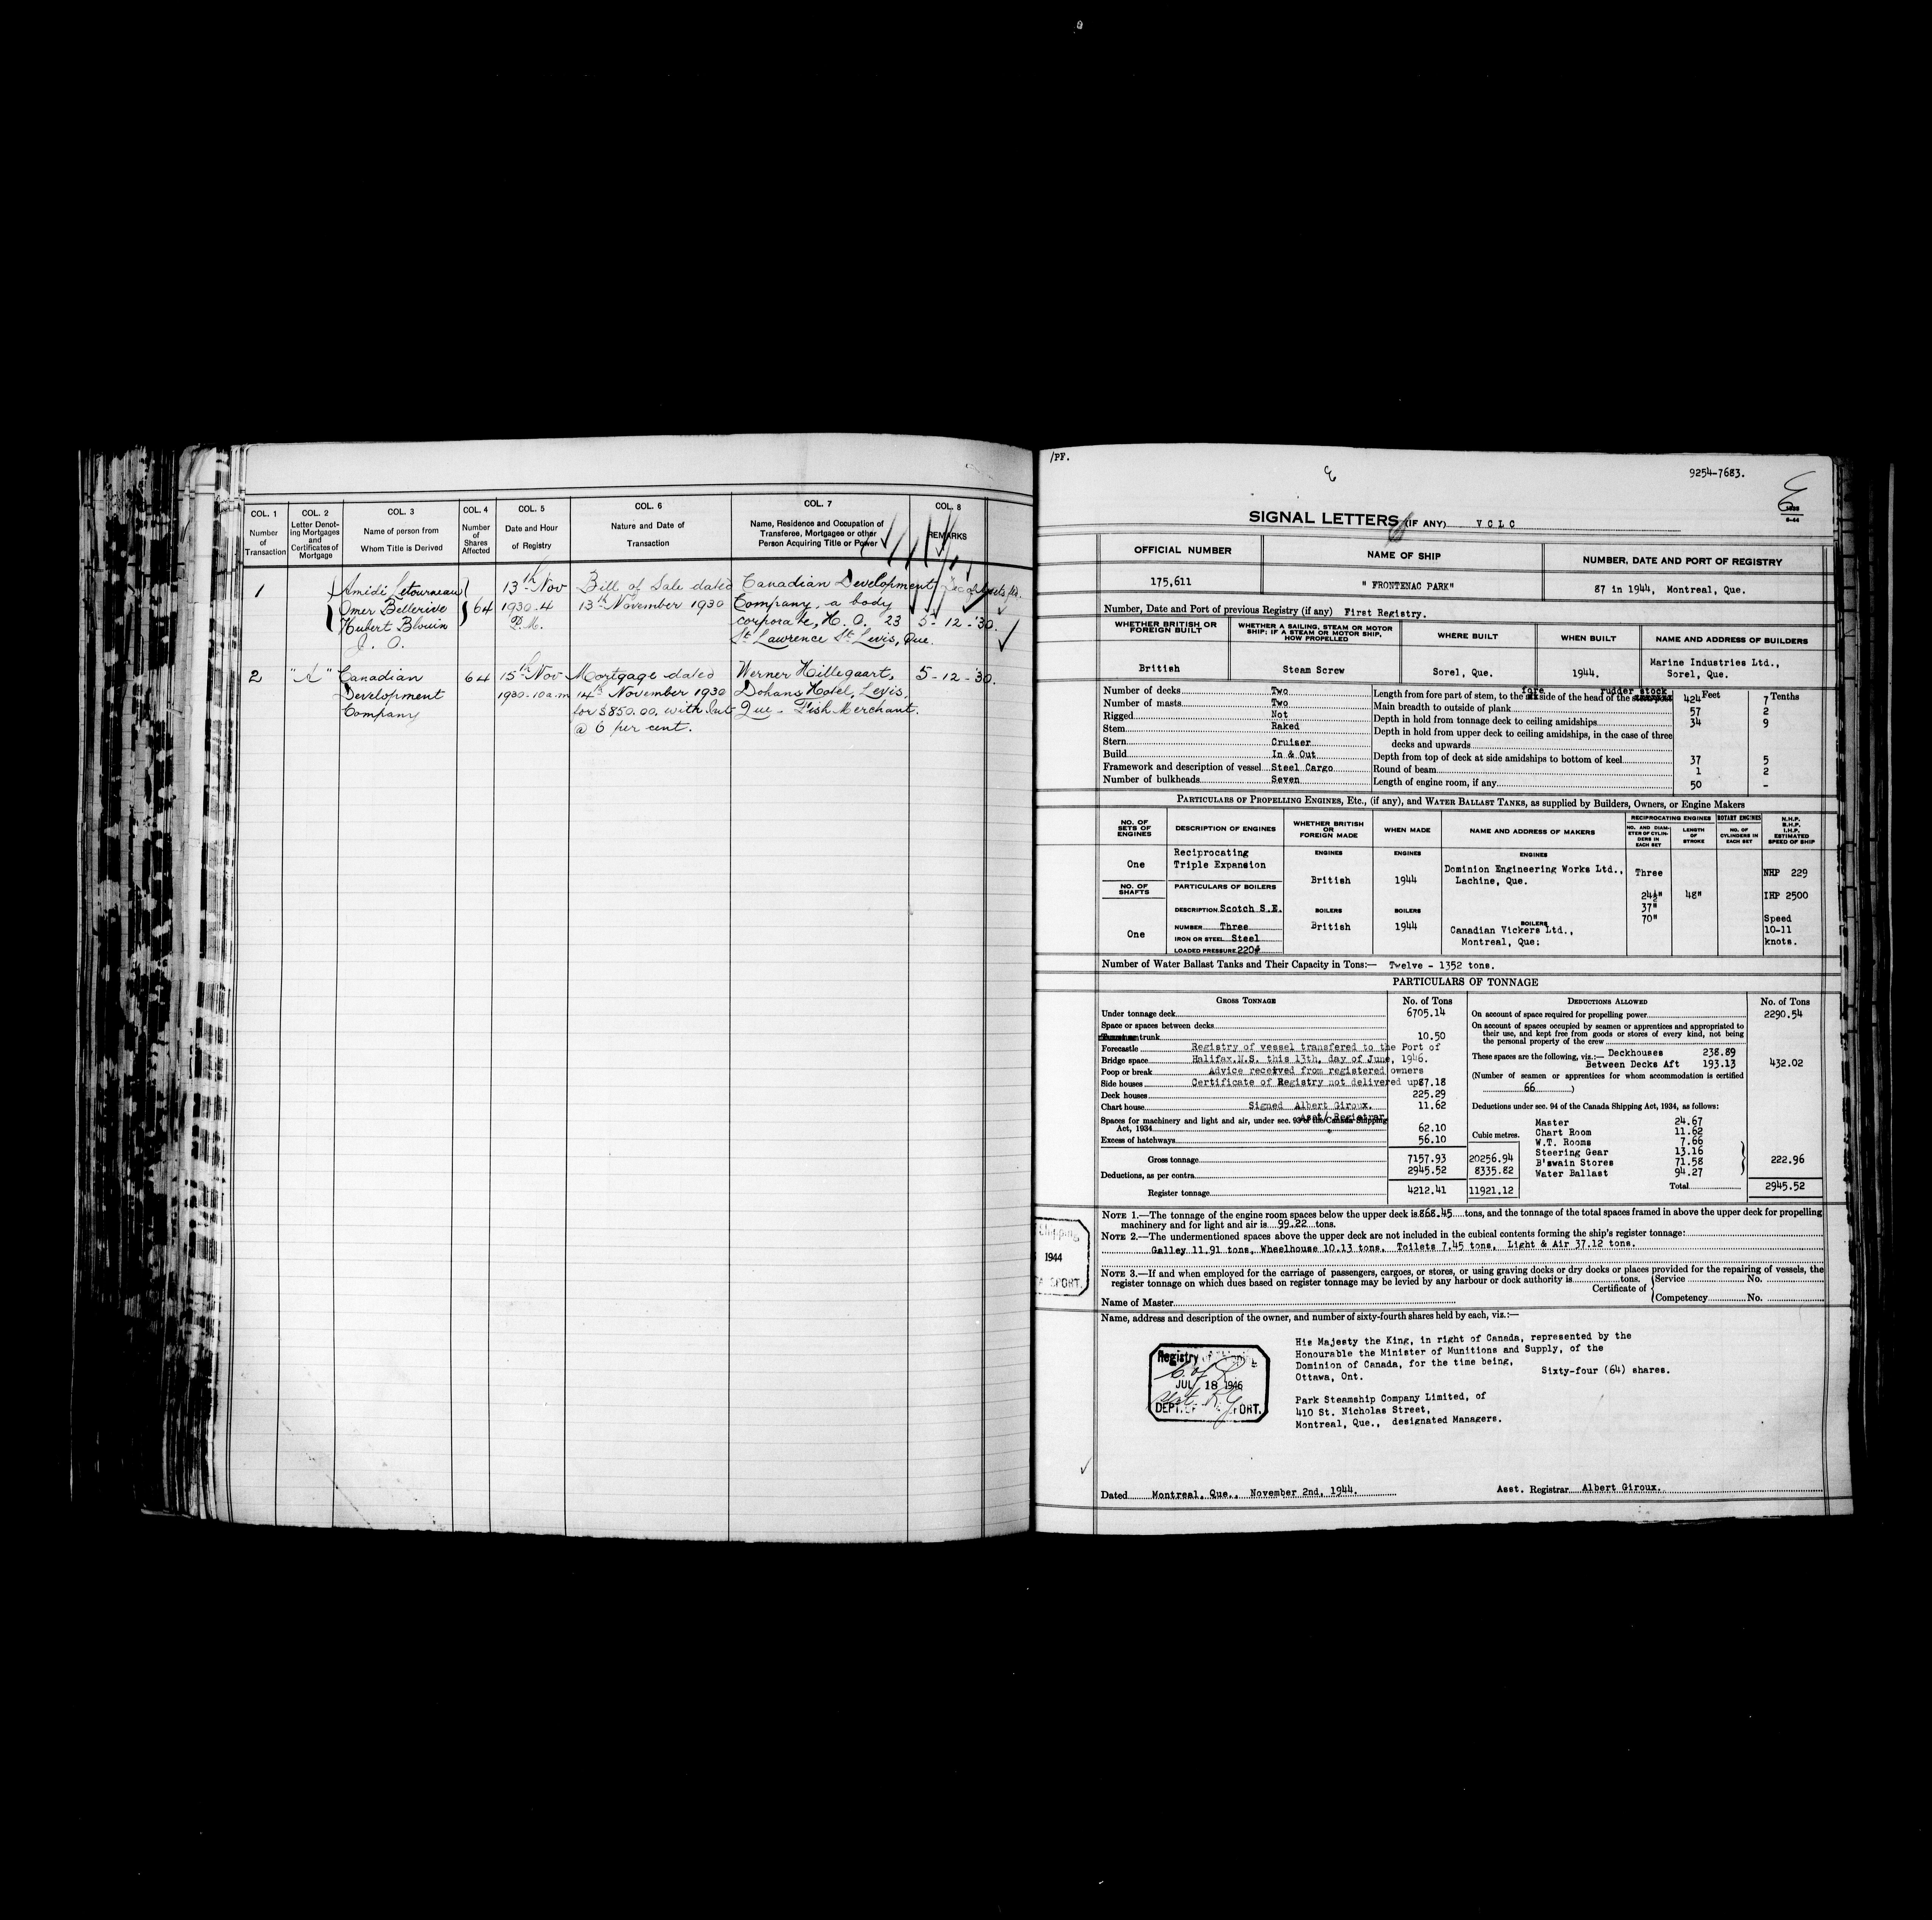 COL. 1
Number
of
Transaction
COL. 2
Letter Denot-
ing Mortgages
and
Certificates of
Mortgage
COL. 3
Name of person from
Whom Title is Derived
COL. 4
Number
of
Shares
Affected
COL. 5
Date and Hour
of Registry
COL. 6
Nature and Date of
Transaction
COL. 7
Name, Residence and Occupation of
Transferee, Mortgagee or other
Person Acquiring Title or Power
COL. 8
REMARKS
1
Amidi Letourneau
Omer Bellerive
Hubert Blouin
J. O.
64
13th Nov
1930-4
P.M.
Bill of Sale dated
13th November 1930
Canadian Development
Company, a body
corporate, H. O. 23
St Lawrence St Levis, Que.
5-12-'30.
2
"A"
Canadian
Development
Company
64
15th Nov
1930-10 a.m
Mortgage dated
14th November 1930
for $850.00, with Int
@ 6 per cent.
Werner Hillegaart,
Dohans Hotel, Levis,
Que - Fish Merchant.
5-12-30.
/PF.
9254-7683.
SIGNAL LETTERS (IF ANY) V C L C
OFFICIAL NUMBER
175,611
NAME OF SHIP
" FRONTENAC PARK"
NUMBER, DATE AND PORT OF REGISTRY
87 in 1944, Montreal, Que.
Number, Date and Port of previous Registry (if any) First Registry.
WHETHER BRITISH OR
FOREIGN BUILT
British
WHETHER A SAILING, STEAM OR MOTOR
SHIP; IF A STEAM OR MOTOR SHIP,
HOW PROPELLED
Steam Screw
WHERE BUILT
Sorel, Que.
WHEN BUILT
1944.
NAME AND ADDRESS OF BUILDERS
Marine Industries Ltd.,
Sorel, Que.
Number of decks Two
Number of masts Two
Rigged Not
Stem Raked
Stern Cruiser
Build In & Out
Framework and description of vessel Steel Cargo
Number of bulkheads Seven
Feet Tenths
fore rudder stock
Length from fore part of stem, to the side of the head of the 424 7
Main breadth to outside of plank 57 2
Depth in hold from tonnage deck to ceiling amidships 34 9
Depth in hold from upper deck to ceiling amidships, in the case of three
decks and upwards
Depth from top of deck at side amidships to bottom of keel 37 5
Round of beam 1 2
Length of engine room, if any 50 -
PARTICULARS OF PROPELLING ENGINES, ETC., (if any), and WATER BALLAST TANKS, as supplied by Builders, Owners, or Engine Makers
NO. OF
SETS OF
ENGINES
One
NO. OF
SHAFTS
One
DESCRIPTION OF ENGINES
Reciprocating
Triple Expansion
PARTICULARS OF BOILERS
DESCRIPTION Scotch S.E.
NUMBER Three
IRON OR STEEL Steel
LOADED PRESSURE 220#
WHETHER BRITISH
OR
FOREIGN MADE
ENGINES
British
BOILERS
British
WHEN MADE
ENGINES
1944
BOILERS
1944
NAME AND ADDRESS OF MAKERS
ENGINES
Dominion Engineering Works Ltd.,
Lachine, Que.
BOILERS
Canadian Vickers Ltd.,
Montreal, Que;
RECIPROCATING ENGINES
NO. AND DIAM-
ETER OF CYLIN-
DERS IN
EACH SET
Three
24½"
37"
70"
LENGTH
OF
STROKE
48"
ROTARY ENGINES
NO. OF
CYLINDERS IN
EACH SET
N.H.P.
B.H.P.
I.H.P.
ESTIMATED
SPEED OF SHIP
NHP 229
IHP 2500
Speed
10-11
knots.
Number of Water Ballast Tanks and Their Capacity in Tons:— Twelve - 1352 tons.
PARTICULARS OF TONNAGE
GROSS TONNAGE No. of Tons
Under tonnage deck 6705.14
Space or spaces between decks
trunk 10.50
Forecastle Registry of vessel transfered to the Port of
Bridge space Halifax.N.S. this 13th, day of June, 1946.
Poop or break Advice received from registered owners
Side houses Certificate of Registry not delivered up 87.18
Deck houses 225.29
Chart house Signed Albert Giroux. 11.62
Asst/ Registrar
Spaces for machinery and light and air, under sec. 93 of the Canada Shipping
Act, 1934 62.10
Excess of hatchways 56.10
Gross tonnage 7157.93
Deductions, as per contra 2945.52
Register tonnage 4212.41
Cubic metres.
20256.94
8335.82
11921.12
DEDUCTIONS ALLOWED No. of Tons
On account of space required for propelling power 2290.54
On account of spaces occupied by seamen or apprentices and appropriated to
their use, and kept free from goods or stores of every kind, not being
the personal property of the crew
These spaces are the following, viz.:— Deckhouses 238.89
Between Decks Aft 193.13 432.02
(Number of seamen or apprentices for whom accommodation is certified
66 )
Deductions under sec. 94 of the Canada Shipping Act, 1934, as follows:
Master 24.67
Chart Room 11.62
W.T. Rooms 7.66
Steering Gear 13.16
B'swain Stores 71.58
Water Ballast 94.27
222.96
Total 2945.52
NOTE 1.—The tonnage of the engine room spaces below the upper deck is 868.45 tons, and the tonnage of the total spaces framed in above the upper deck for propelling
machinery and for light and air is 99.22 tons.
NOTE 2.—The undermentioned spaces above the upper deck are not included in the cubical contents forming the ship's register tonnage:
Galley 11.91 tons, Wheelhouse 10.13 tons, Toilets 7.45 tons, Light & Air 37.12 tons.
NOTE 3.—If and when employed for the carriage of passengers, cargoes, or stores, or using graving docks or dry docks or places provided for the repairing of vessels, the
register tonnage on which dues based on register tonnage may be levied by any harbour or dock authority is tons.
Certificate of
Service No.
Competency No.
Name of Master
1944
Name, address and description of the owner, and number of sixty-fourth shares held by each, viz.:—
His Majesty the King, in right of Canada, represented by the
Honourable the Minister of Munitions and Supply, of the
Dominion of Canada, for the time being,
Ottawa, Ont.
Sixty-four (64) shares.
Park Steamship Company Limited, of
410 St. Nicholas Street,
Montreal, Que., designated Managers.
Registry
C of R
JUL 18 1946
DEPT.
Dated Montreal, Que., November 2nd, 1944.
Asst. Registrar Albert Giroux.